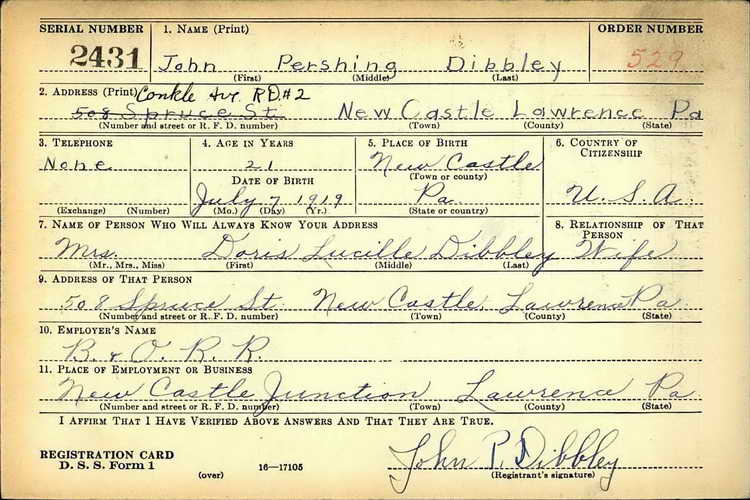 SERIAL NUMBER 1. NAME (Print) ORDER NUMBER
2431 John Pershing Dibbley 529
(First) (Middle) (Last)
2. ADDRESS (Print) Conkle Ave R.D.#2
508 Spruce St. New Castle Lawrence Pa
(Number and street or R. F. D. number) (Town) (County) (State)
3. TELEPHONE 4. AGE IN YEARS 5. PLACE OF BIRTH 6. COUNTRY OF CITIZENSHIP
None 21 New Castle
DATE OF BIRTH (Town or county)
July 7 1919 Pa. U.S.A.
(Exchange) (Number) (Mo.) (Day) (Yr.) (State or country)
7. NAME OF PERSON WHO WILL ALWAYS KNOW YOUR ADDRESS 8. RELATIONSHIP OF THAT PERSON
Mrs. Doris Lucille Dibbley Wife
(Mr., Mrs., Miss) (First) (Middle) (Last)
9. ADDRESS OF THAT PERSON
508 Spruce St. New Castle, Lawrence Pa.
(Number and street or R. F. D. number) (Town) (County) (State)
10. EMPLOYER'S NAME
B. & O. R. R.
11. PLACE OF EMPLOYMENT OR BUSINESS
New Castle Junction Lawrence Pa.
(Number and street or R. F. D. number) (Town) (County) (State)
I AFFIRM THAT I HAVE VERIFIED ABOVE ANSWERS AND THAT THEY ARE TRUE.
REGISTRATION CARD John P. Dibbley
D. S. S. Form 1 (over) 16—17105 (Registrant's signature)